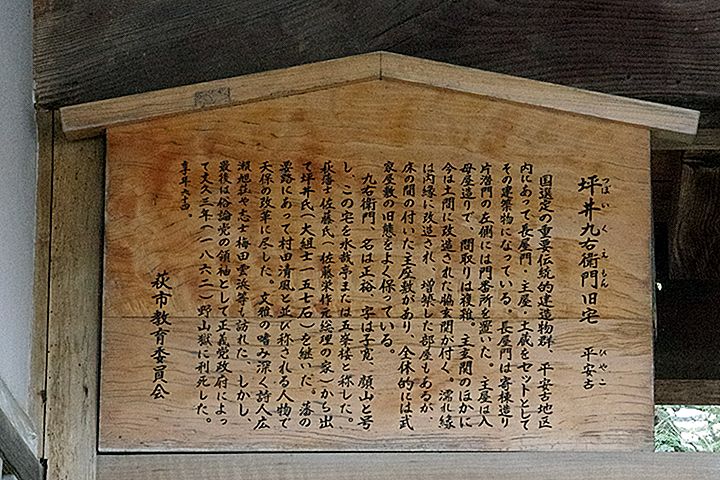 つぼいくえもん
坪井九右衛門旧宅
ひやこ
平安古
国選定の重要伝統的建造物群、平安古地区
内にあって長屋門・主屋・土蔵をセットとして
その建築物になっている。長屋門は寄棟造り
片潜門の左側には門番所を置いた。主屋は入
母屋造りで、間取りは複雑。主玄関のほかに
今は土間に改造された脇玄関が付く。濡れ縁
は内縁に改造され、増築した部屋もあるが、
床の間の付いた主座敷があり、全体的には武
家屋敷の旧態をよく保っている。
九右衛門、名は正裕、字は子寛、顔山と号
し、この宅を氷哉亭または五峯楼と称した。
萩藩士佐藤氏(佐藤栄作元総理の家)から出
て坪井氏(大組士一五七石)を継いだ。藩の
要路にあって村田清風と並び称される人物で
天保の改革に尽した。文雅の嗜み深く詩人広
瀬旭荘や志士梅田雲浜等も訪れた。しかし、
最後は俗論党の領袖として正義党政府によっ
て文久三年(一八六二)野山獄に刑死した。
享年六十四。
萩市教育委員会